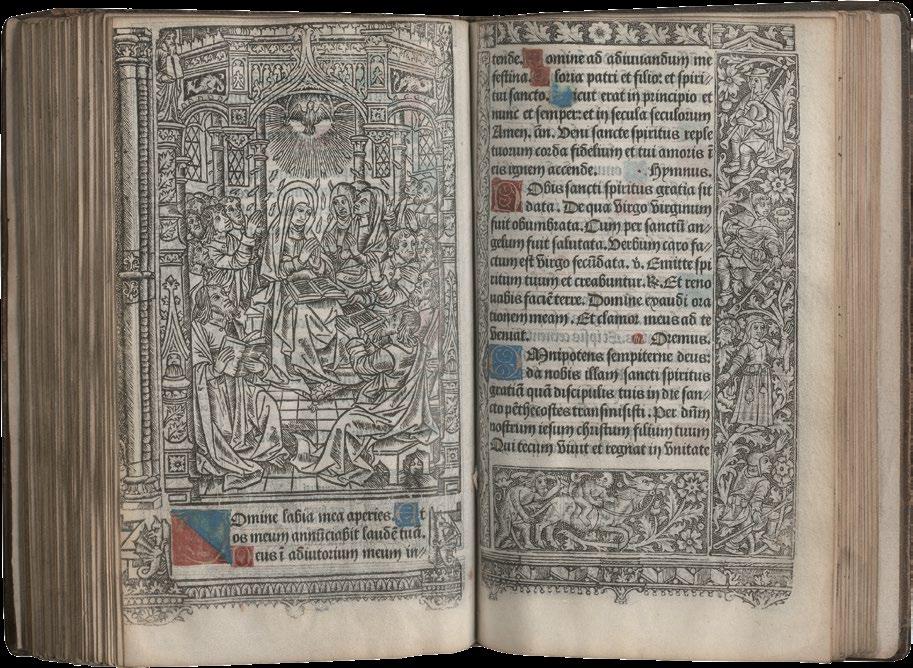 Omine labia mea aperies. Et
os meum annūciabit laudē tuā.
Deus ī adiutorium meum in-
tende. Domine ad adiuvandum me
festina. Gloria patri et filio: et spiri-
tui sancto. Sicut erat in principio et
nunc et semper: et in secula seculorum
Amen. añ. Veni sancte spiritus reple
tuorum corda fidelium et tui amoris ī
eis ignem accende. Hymnus.
Nobis sancti spiritus gratia sit
data. De qua virgo virginum
fuit obumbrata. Cum per sanctū an-
gelum fuit salutata. Verbum caro fa-
ctum est virgo fecūdata. v. Emitte spi
ritum tuum et creabuntur. R. Et reno
uabis faciē terre. Domine exaudi ora
tionem meam. Et clamor meus ad te
veniat. Oremus.
OMnipotens sempiterne deus:
da nobis illam sancti spiritus
gratiā quā discipulis tuis in die san-
cto pēthecostes transmisisti. Per dn̄m
nostrum iesum christum filium tuum
Qui tecum vivit et regnat in vnitate